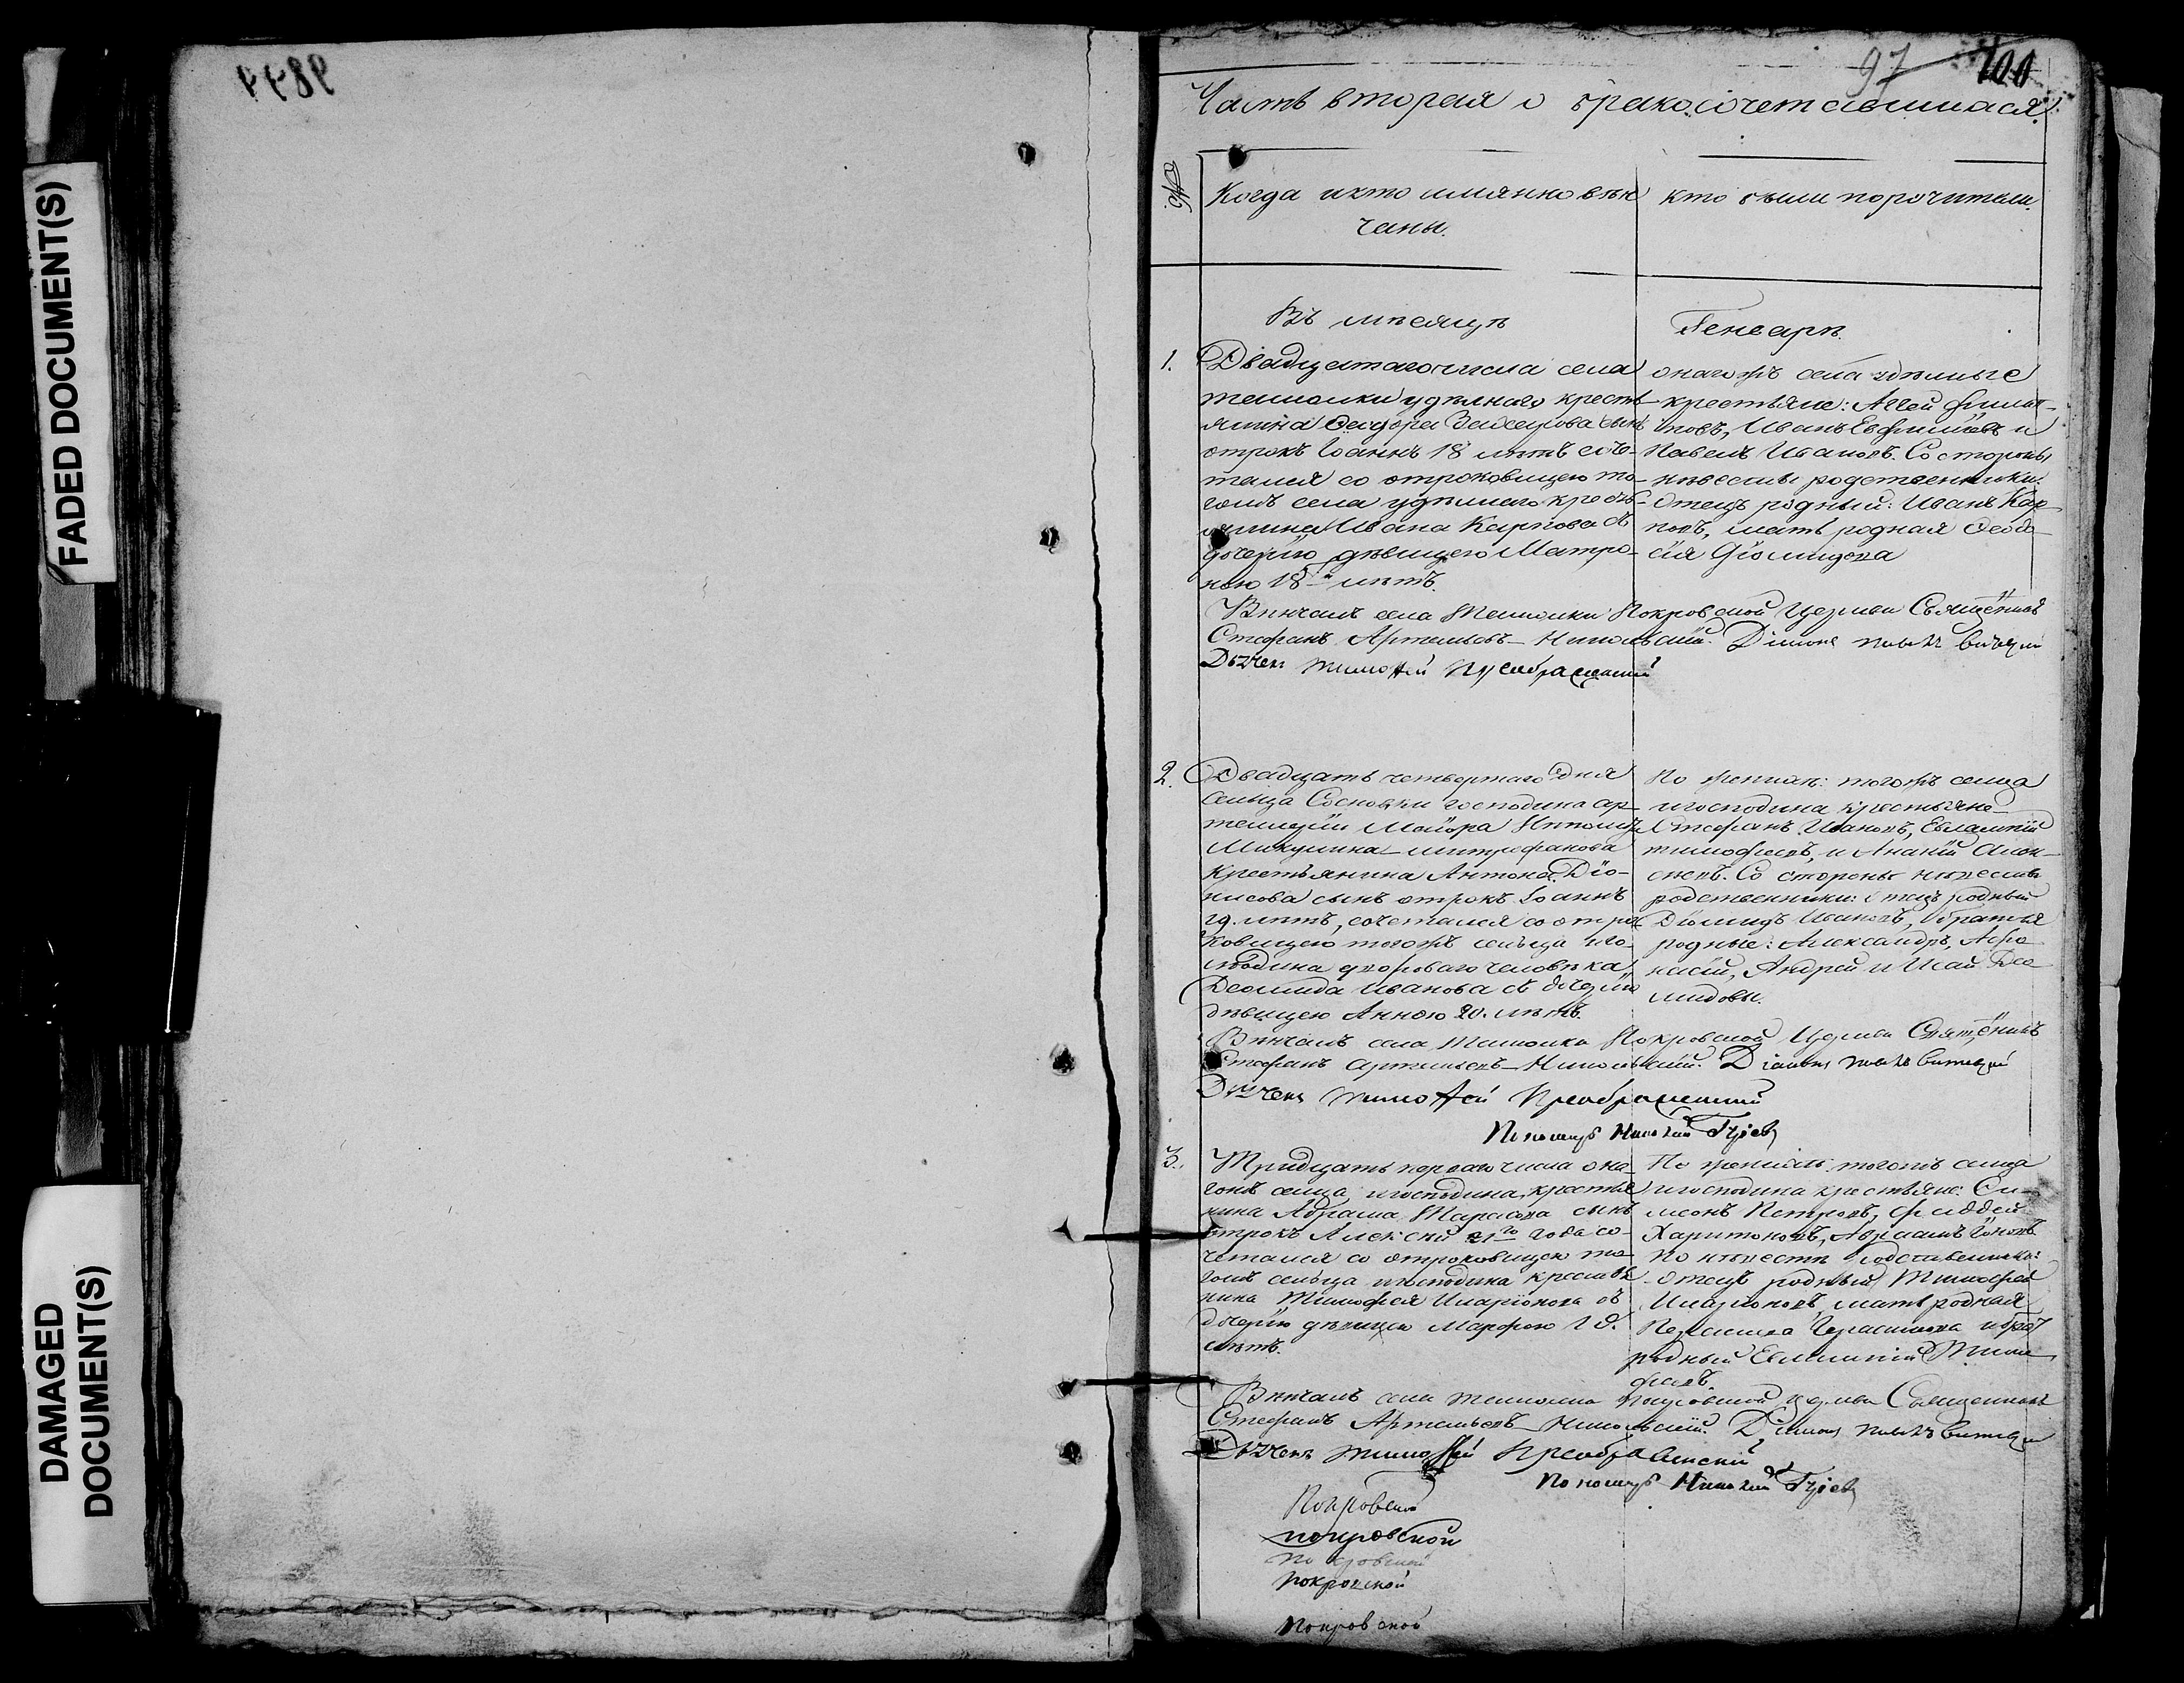 FADED DOCUMENT(S)
DAMAGED
DOCUMENT(S)
97 100
Часть вторая о бракосочетавшихся.
№
Когда и кто имянно вѣн
чаны.
кто были поручители.
Въ мѣсяцѣ
Генварѣ.
1.
Двадцатаго числа села
удѣлнаго кресть
янина Ѳеодора сынъ
отрокъ Іоаннъ 18 лѣтъ соче-
тался со отроковицею то-
гожъ села удѣлнаго кресть-
янина Ивана Карпова съ
дочерию дѣвицею Матро-
ною 18 лѣтъ.
онагожъ села удѣлные
крестьяне: Филип-
повъ, Иванъ Евфимовъ и
Павелъ Ивановъ. Со стороны
невесты родственники:
Отецъ родный: Иванъ Кар-
повъ, мать родная Ѳеодо-
сія Діомидова
Вѣнчалъ села Покровской Церкви Священникъ
Стефанъ Артемьевъ Никольскій. Діаконъ
Дьячекъ Тимоѳей Преображенский
2.
Двадцать четвертаго дня
Сельца Сосновки господина ар-
тиллеріи Маіора
Микулина Митрофанова
Крестьянина Антона Діо-
нисова сынъ отрокъ Іоаннъ
лѣтъ, сочетался со отро
ковицею тогожъ сельца и го-
сподина двороваго человѣка
Деомида Иванова съ дочерию
дѣвицею Анною 20. лѣтъ.
По женихѣ: тогожъ селца
и господина крестьяне
Стефанъ Ивановъ, Евлампій
Тимофеевъ, и Ананій Алек-
сеевъ. Со стороны невесты
родственники: отецъ родный
Діомидъ Ивановъ, братья
родные: Александръ, Афа
насій, Андрей и Исай Део
мидовы.
Вѣнчалъ села Покровской Церкви Священникъ
Стефанъ Артемьевъ Никольскій. Діаконъ
Дьячекъ Тимоѳей Преображенский
Пономарь Николай Гурьевъ
3.
Тридцать перваго числа она
гожъ селца и господина крестья
нина Абрама Тарасова сынъ
отрокъ Алексѣй 21го года со-
четался со отроковицею то-
гожъ сельца и господина крестья
нина Тимофея Иларіонова съ
дочерию дѣвицею Марфою 18.
лѣтъ.
По женихѣ: тогожъ селца
и господина крестьяне: Си-
меонъ Петровъ, Фаддей
Харитоновъ, Абрамъ
По невестѣ родственники:
отецъ родный Тимофей
Иларіоновъ, мать родная
Герасимова и братъ
родный Евлампій Тимо
феевъ.
Вѣнчалъ села Покровской церкви Священникъ
Стефанъ Артемьевъ Никольскій. Діаконъ
Дьячекъ Тимоѳей Преображенский
Пономарь Николай Гурьевъ
Покровской
покровской
покровской
покровской
покровской